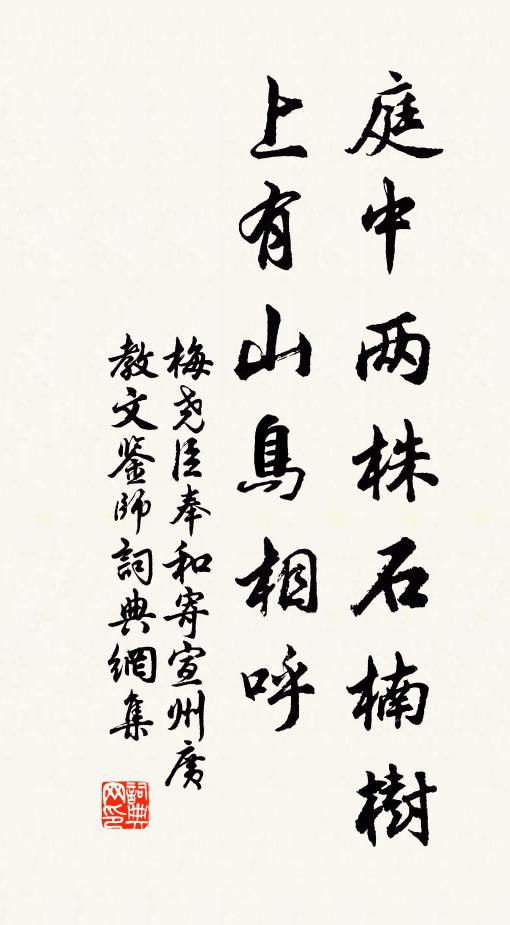 庭中两株石楠樹
上有山鳥相呼
梅尧臣奉和寄宣州廣
教文鉴師詞典網集
詞典
网印